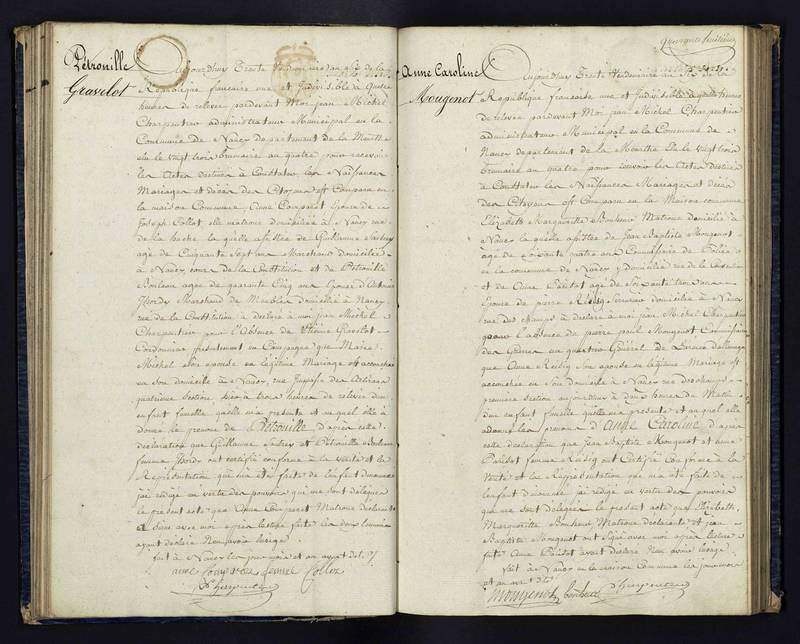 Pétronille
Gravelot
Aujourd'hui Trente Vendemiaire an six de la
Republique francaise une et Indivisible à quatre
heures de relevée pardevant Moi jean Michel
Charpentier administrateur Municipal en la
Commune de Nancy departement de la Meurthe
elu le vingt trois brumaire an quatre pour recevoir
les actes destinés à Constater les Naissances
Mariages et décès des Citoyens est Comparu en
la maison Commune, Anne Comparet Epouse de
Joseph Collot elle matrone domiciliée à Nancy rue
de la hache la quelle assistée de Guillaume
age de Cinquante Sept ans Marchand domicilié
à Nancy cour de la Constitution et de Pétronille
Bonleau agée de quarante Cinq ans Epouse d'Antoine
Isords Marchand de Meuble domicilié à Nancy
rue de la Constitution, à declaré à moi jean Michel
Charpentier pour l'absence de Etienne Gravelot
Cordonnier presentement en Campagne que Marie
Michel son epouse en légitime Mariage est accouchée
en son domicile à Nancy, rue Impasse des Artisans
quatrieme section hier à trois heures de relevée d'un
enfant femelle quelle m'a presenté et au quel elle à
donné le prenom de Pétronille d'après cette
declaration que Guillaume et Pétronille Bonleau
femme Isords ont certifié conforme à la verité et la
Représentation qui m'a été faite de l'enfant denommé
j'ai rédigé en vertu des pouvoirs qui me sont délégués
le present acte que Anne Comparet Matrone declarante
à signé avec moi après lecture faite les deux temoins
ayant declaré Ne savoir le signé
fait à Nancy les jour mois et an avant dits
anne Comparet femme Collot
Charpentier
Anne Caroline
Mougenot
Aujourd'hui Trente Vendemiaire an Six de la
République francaise une et Indivisible à quatre heures
de relevée pardevant Moi jean Michel Charpentier
administrateur Municipal en la Commune de
Nancy departement de la Meurthe Elu le vingt trois
brumaire an quatre pour recevoir les Actes destinés
à Constater les Naissances Mariages et décès
des Citoyens est Comparu en la Maison commune
Elizabeth Margueritte Bonheur Matrone domiciliée à
Nancy la quelle assistée de Jean Baptiste Mougenot
age de soixante quatre ans Commissaire de Police
en la commune de Nancy y domicilié rue de la
et de Anne Parisot age de Soixante trois ans
Epouse de pierre Résig domicilié à Nancy
rue des champs à declaré à moi jean Michel Charpentier
pour l'absence de pierre paul Mougenot Commissaire
des Guerres au quartier Général de l'armée d'allemagne
que Anne Résig son epouse en légitime Mariage est
accouchée en son Domicile à Nancy rue des champs
premiere section aujourd'hui à deux heures du Matin
d'un enfant femelle quelle m'a presenté et au quel elle
à donné les prenoms d'Anne Caroline d'après
cette declaration que Jean Baptiste Mougenot et anne
Parisot femme Résig ont Certifié Conforme à la
Verité et la Représentation qui m'a été faite de
l'enfant denommé j'ai rédigé en vertu des pouvoirs
qui me sont délégués le present acte que Elizabeth
Margueritte Bonheur Matrone declarante et jean
Baptiste Mougenot ont Signé avec moi après lecture
faite Anne Parisot ayant declaré Ne savoir le signé
fait à Nancy en la maison Commune les jour mois
et an avant dits
Mougenot Bonheur Charpentier